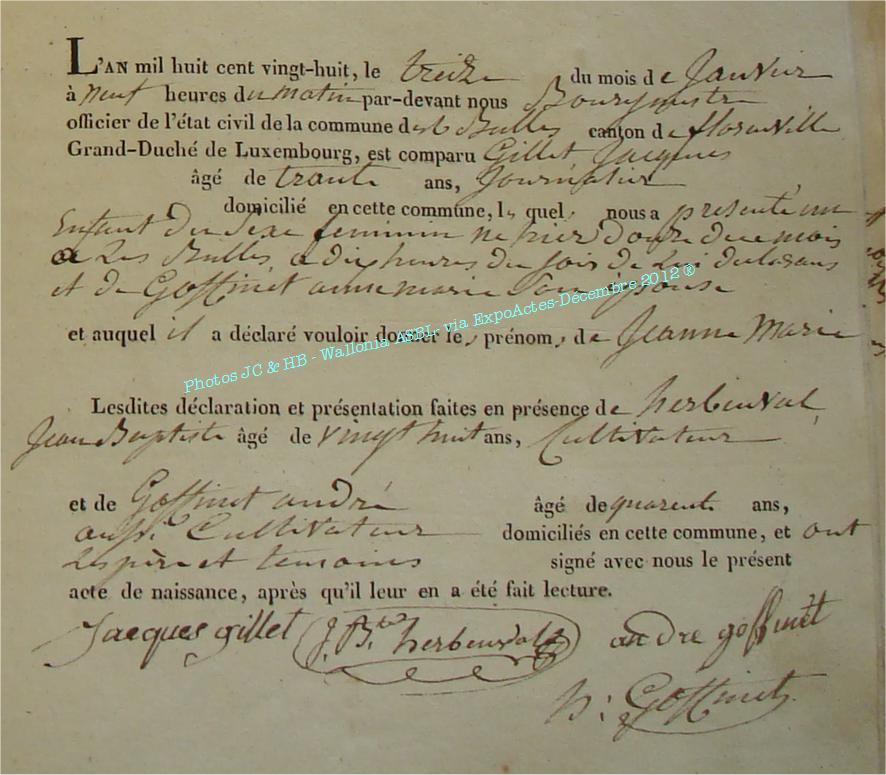 L'AN mil huit cent vingt-huit, le treize du mois de Janvier
à neuf heures du matin par-devant nous Bourgmestre
officier de l'état civil de la commune des Bulles canton de florenville
Grand-Duché de Luxembourg, est comparu Gillet Jacques
âgé de trante ans, Journalier
domicilié en cette commune, le quel nous a présenté un
Enfant du Sexe feminin né hier douze du ce mois
a Les Bulles a dix heures du soir de Lui declarans
et de Goffinet anne marie Son épouse
et auquel il a déclaré vouloir donner les prénoms de Jeanne Marie
Photos JC & HB - Wallonia ASBL, via ExpoActes-Décembre 2012 ®
Lesdites déclaration et présentation faites en présence de herbeuval
Jean Baptiste âgé de vingt huit ans, Cultivateur
et de Goffinet andré âgé de quarente ans,
aussi Cultivateur domiciliés en cette commune, et ont
Les père et temoins signé avec nous le présent
acte de naissance, après qu'il leur en a été fait lecture.
Jacques gillet J. Bte herbeuval andre goffinet
h: Goffinet